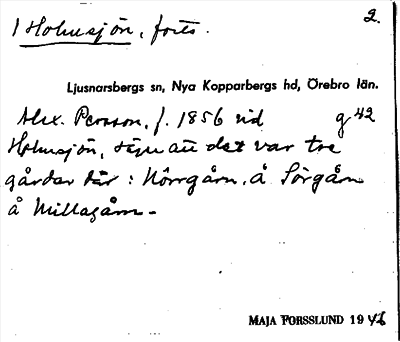 1 Holmsjön, forts. 2.
Ljusnarsbergs sn, Nya Kopparbergs hd, Örebro län.
Alex. Persson, f. 1856 vid g 42
Holmsjön, säger att det var tre
gårdar där: Norrgårn, å Sörgårn
å Millagårn.
MAJA FORSSLUND 19